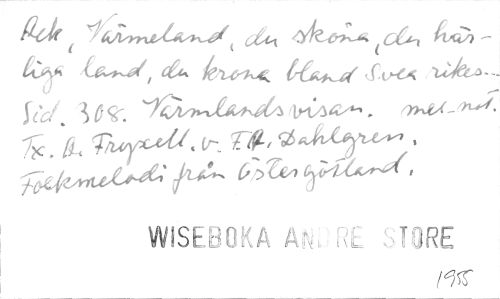 Ack, Värmeland, du sköna, du här-
liga land, du krona bland Svea rikes...
Sid. 308. Värmlandsvisan. mel-not.
Tx. A. Fryxell. o. F.A. Dahlgren.
Folkmelodi från Östergötland.
WISEBOKA ANDRE STORE
1955